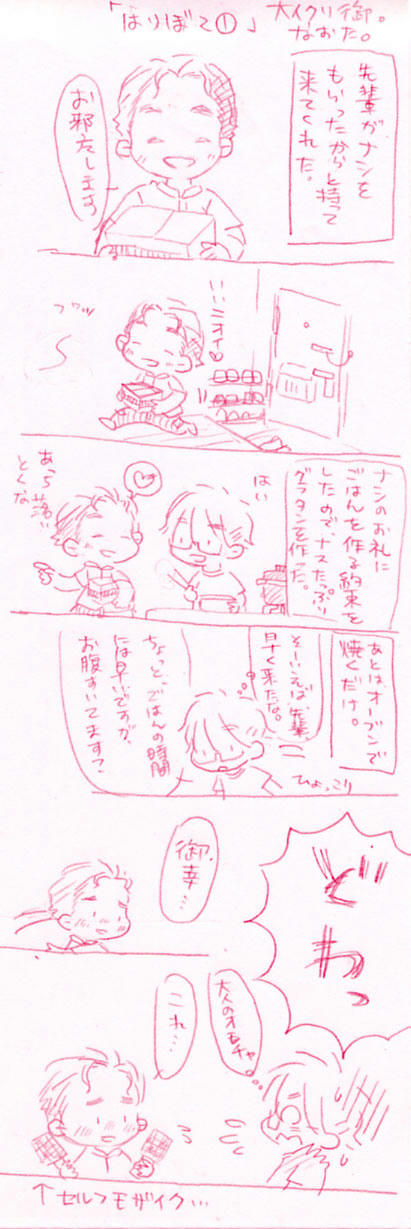 「はりぼて①」
大イクリ御。
なおた。
先輩がナシを
もらったからと持って
来てくれた。
お邪广します
いいニオイ♡
フワッ
ナシのお礼に
ごはんを作る約束を
したので、ナスたっぷり
グラタンを作った。
はい
あち落い
とくな
あとはオーブンで
焼くだけ。
そーいえば先輩
早く来たな。
ひょっこり
ちょっと、ごはんの時間
には早いですが、
お腹すいてます?
どわっ
御幸…
大人のオモチャ
これ…
↑セルフモザイク…